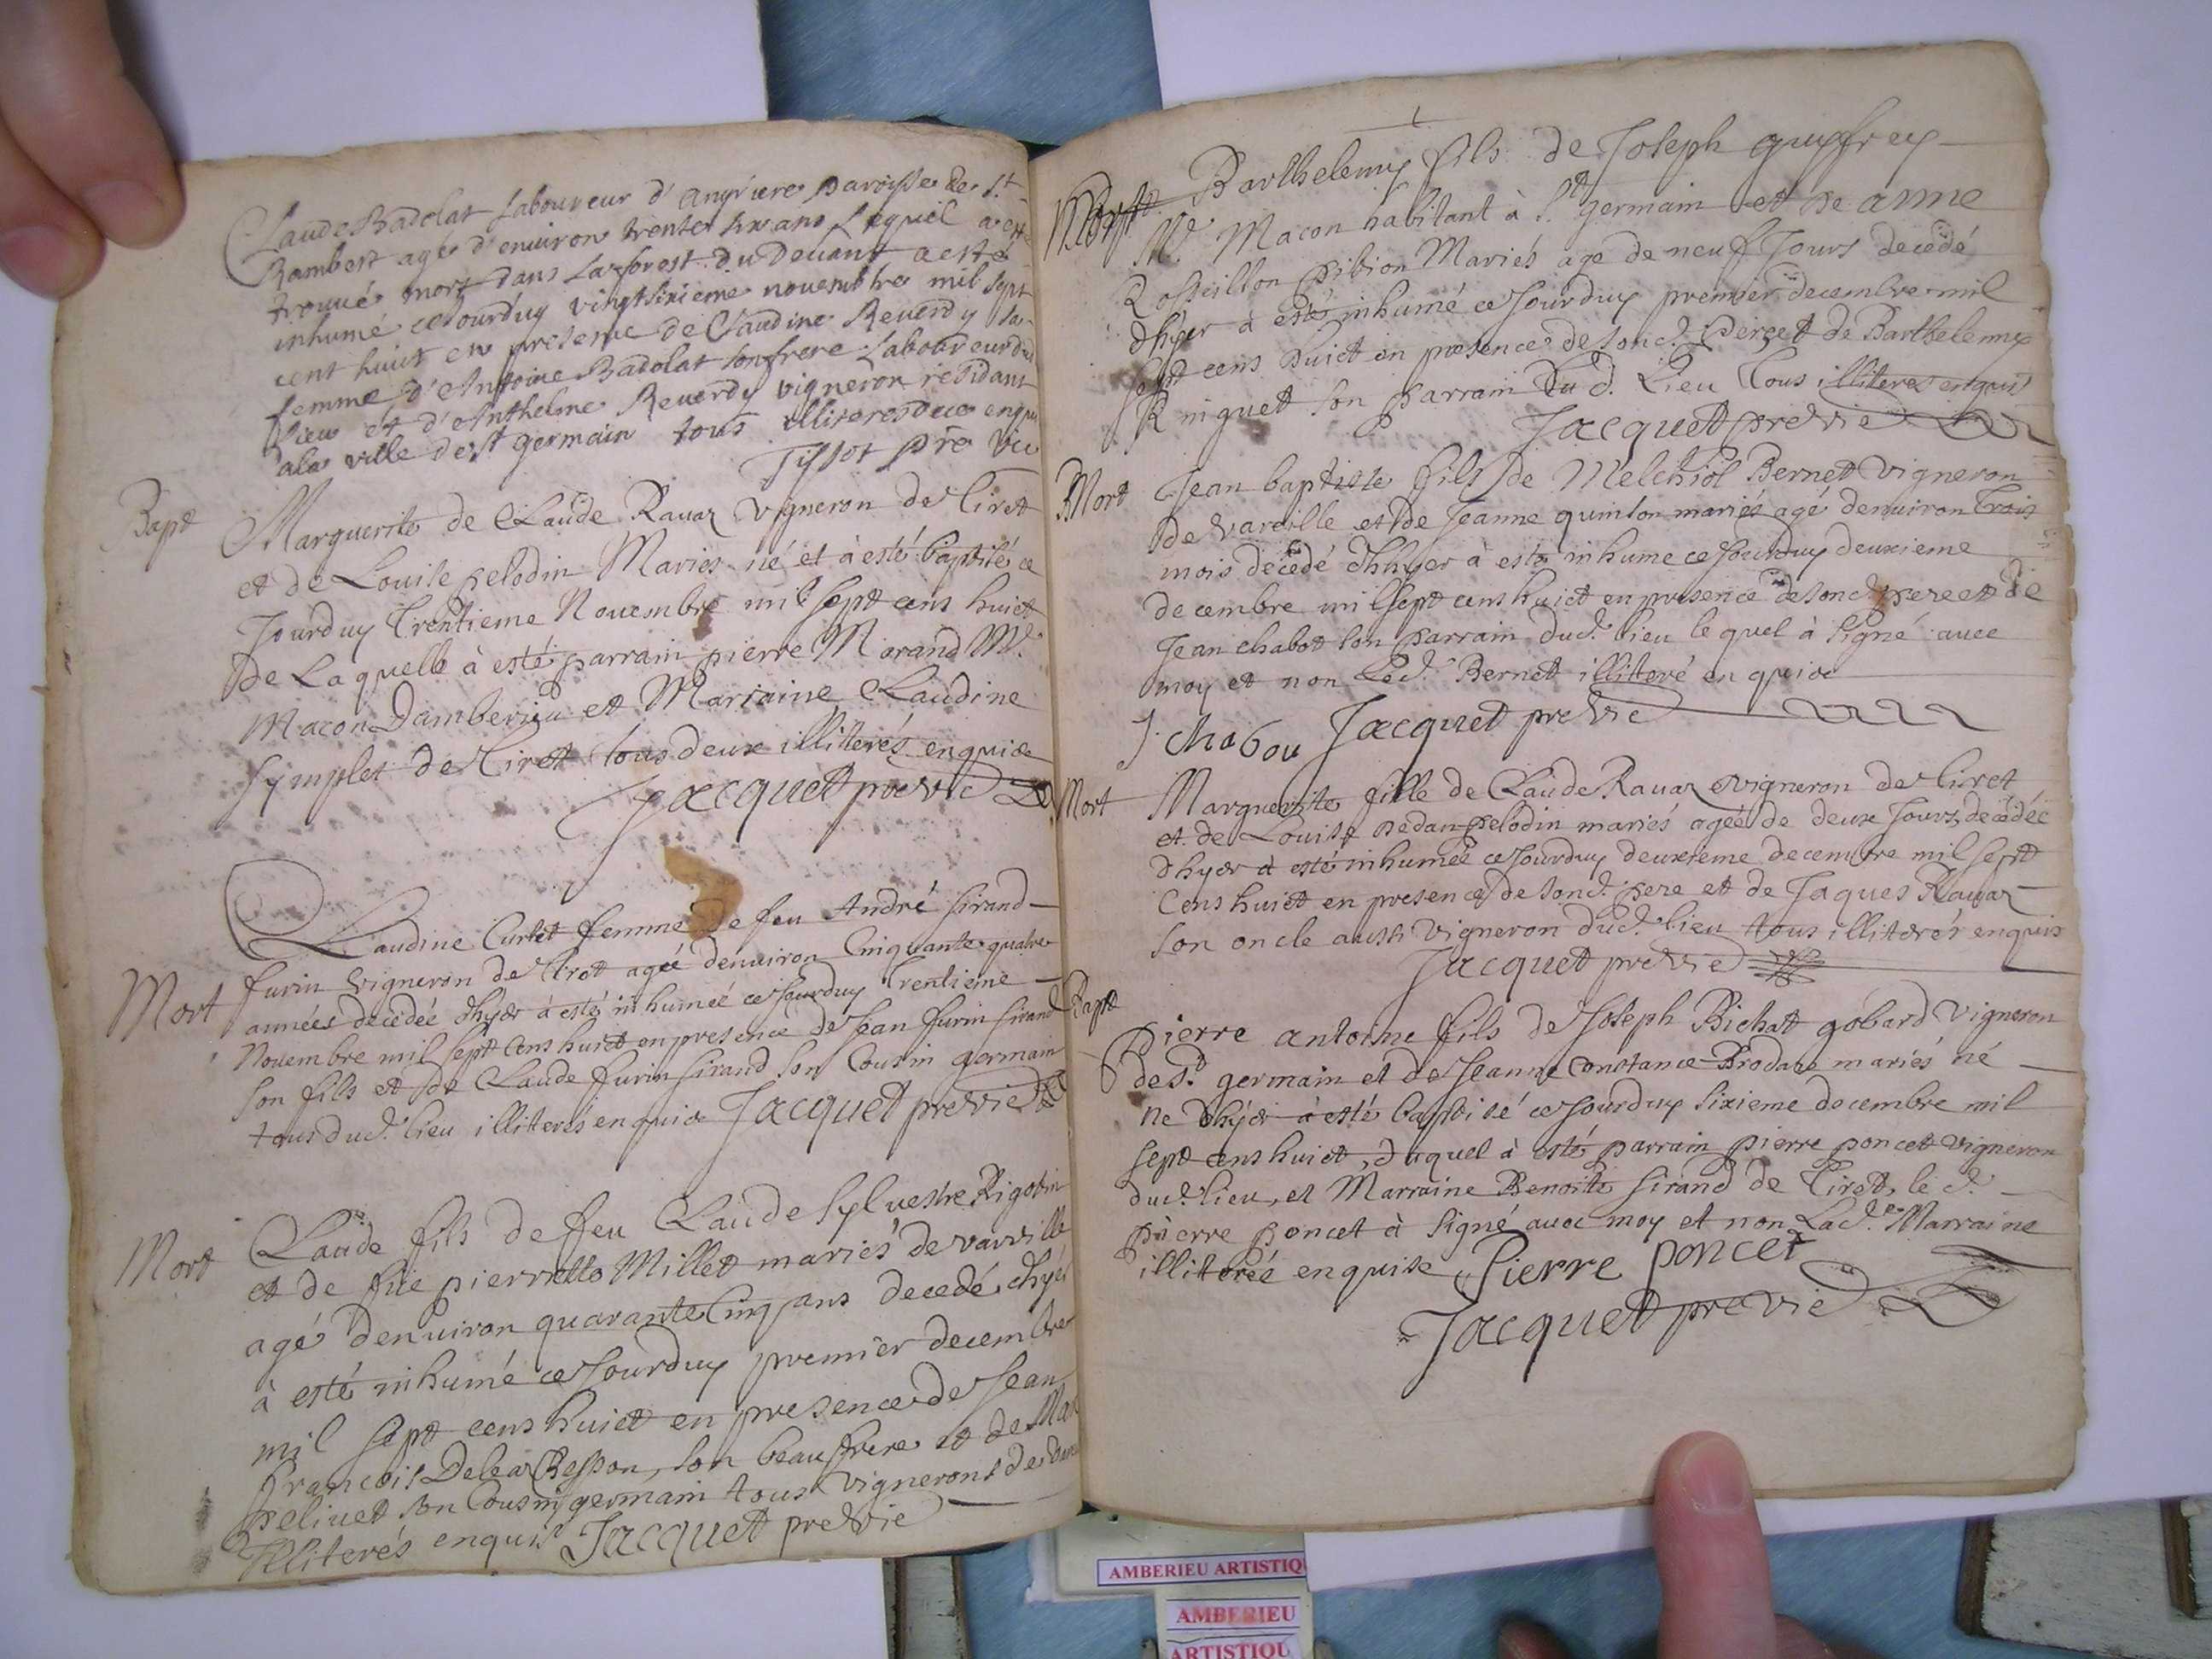 Claude Badolat laboureur d'angrieres paroisse de St
Rambert agé d'environ trente six ans lequel a esté
trouué mort dans la forest du Deuant a esté
inhumé ce Jourduy vingtsixieme nouembre mil sept
cent huit en presence de Claudine Reuerdy sa
femme d'Antoine Badolat son frere laboureur dud
lieu et d'Anthelme Reuerdy vigneron residant
a la ville de St germain tous illiteres de ce enquis
Tissot pre vic
Bapt
Marguerite de Claude Rauaz vigneron de Tiret
et de Louise pelodin Mariés né et à esté baptisé ce
Jourduy Trentieme Nouembre mil sept cens huict
de Laquelle à esté parrain pierre Morand Me.
Macon Damberieu et Marraine Claudine
Symplet de Tiret tous deux illiterés enquis
Jacquet pre vic
Claudine Curtet femme de feu André sirand
Mort
furin vigneron de Tiret agée denuiron Cinquante quatre
années decedée dhyer à esté inhumée ce Jourduy Trentieme
Nouembre mil sept cens huict en presence de Jean furin sirand
son fils et de Claude furin sirand son Cousin germain
tous dud. lieu illiterés enquis Jacquet pre vic
Mort
Claude fils de feu Claude Syluestre Rigotin
et de füe pierrette Millet mariés de vareille
agé denuiron quarante Cinq ans decedé dhyer
à esté inhumé ce Jourduy premier decembre
mil sept cens huict en presence de Jean
francois Delea Chesson, son beau frere et de
peliuet son Cousin germain tous vignerons de
Illiterés enquis Jacquet pre vic
Mort
Barthelemy fils de Joseph guyfrey
Me. Macon habitant à St germain et de anne
Rosseillon pibion Mariés agé de neuf Jours decedé
dhyer à esté inhumé ce Jourduy premier decembre mil
sept cens huict en presence de sond. pere et de Barthelemy
Ringuet son parrain du d. Lieu Tous illiteres enquis
Jacquet pre vic
Mort
Jean baptiste fils de Melchiol Bernet vigneron
de vareille et de Jeanne quinson mariés agé denuiron Trois
mois decedé dhhyer à esté inhume ce Jourduy deuxieme
decembre mil sept cens huict en presence de sond. pere et de
Jean chabot son parrain dud. lieu le quel à signé auec
moy et non Led. Bernet illiteré enquis
J. chabou Jacquet pre vic
Mort
Marguerite fille de Claude Rauaz vigneron de tiret
et de Louise pedan pelodin mariés agée de deux Jours, decedée
dhyer à esté inhumée ce Jourduy deuxieme decembre mil sept
Cens huict en presence de sond. pere et de Jaques Rauaz
son oncle aussi vigneron dud. lieu tous illiterés enquis
Jacquet pre vic
Bapt
pierre antoine fils de Joseph Bichat gobard vigneron
de St germain et de Jeanne Constance Brodare mariés né
ne dhyer à esté baptisé ce Jourduy sixieme decembre mil
sept cens huict, duquel à esté parrain pierre poncet vigneron
dud. lieu, et Marraine Benoite sirand de Tiret, le d.
pierre poncet à signé auec moy et non Lad.e Marraine
illiterée enquise Pierre poncet
Jacquet pre vic
AMBERIEU ARTISTIQ
AMBERIEU
ARTISTIQU